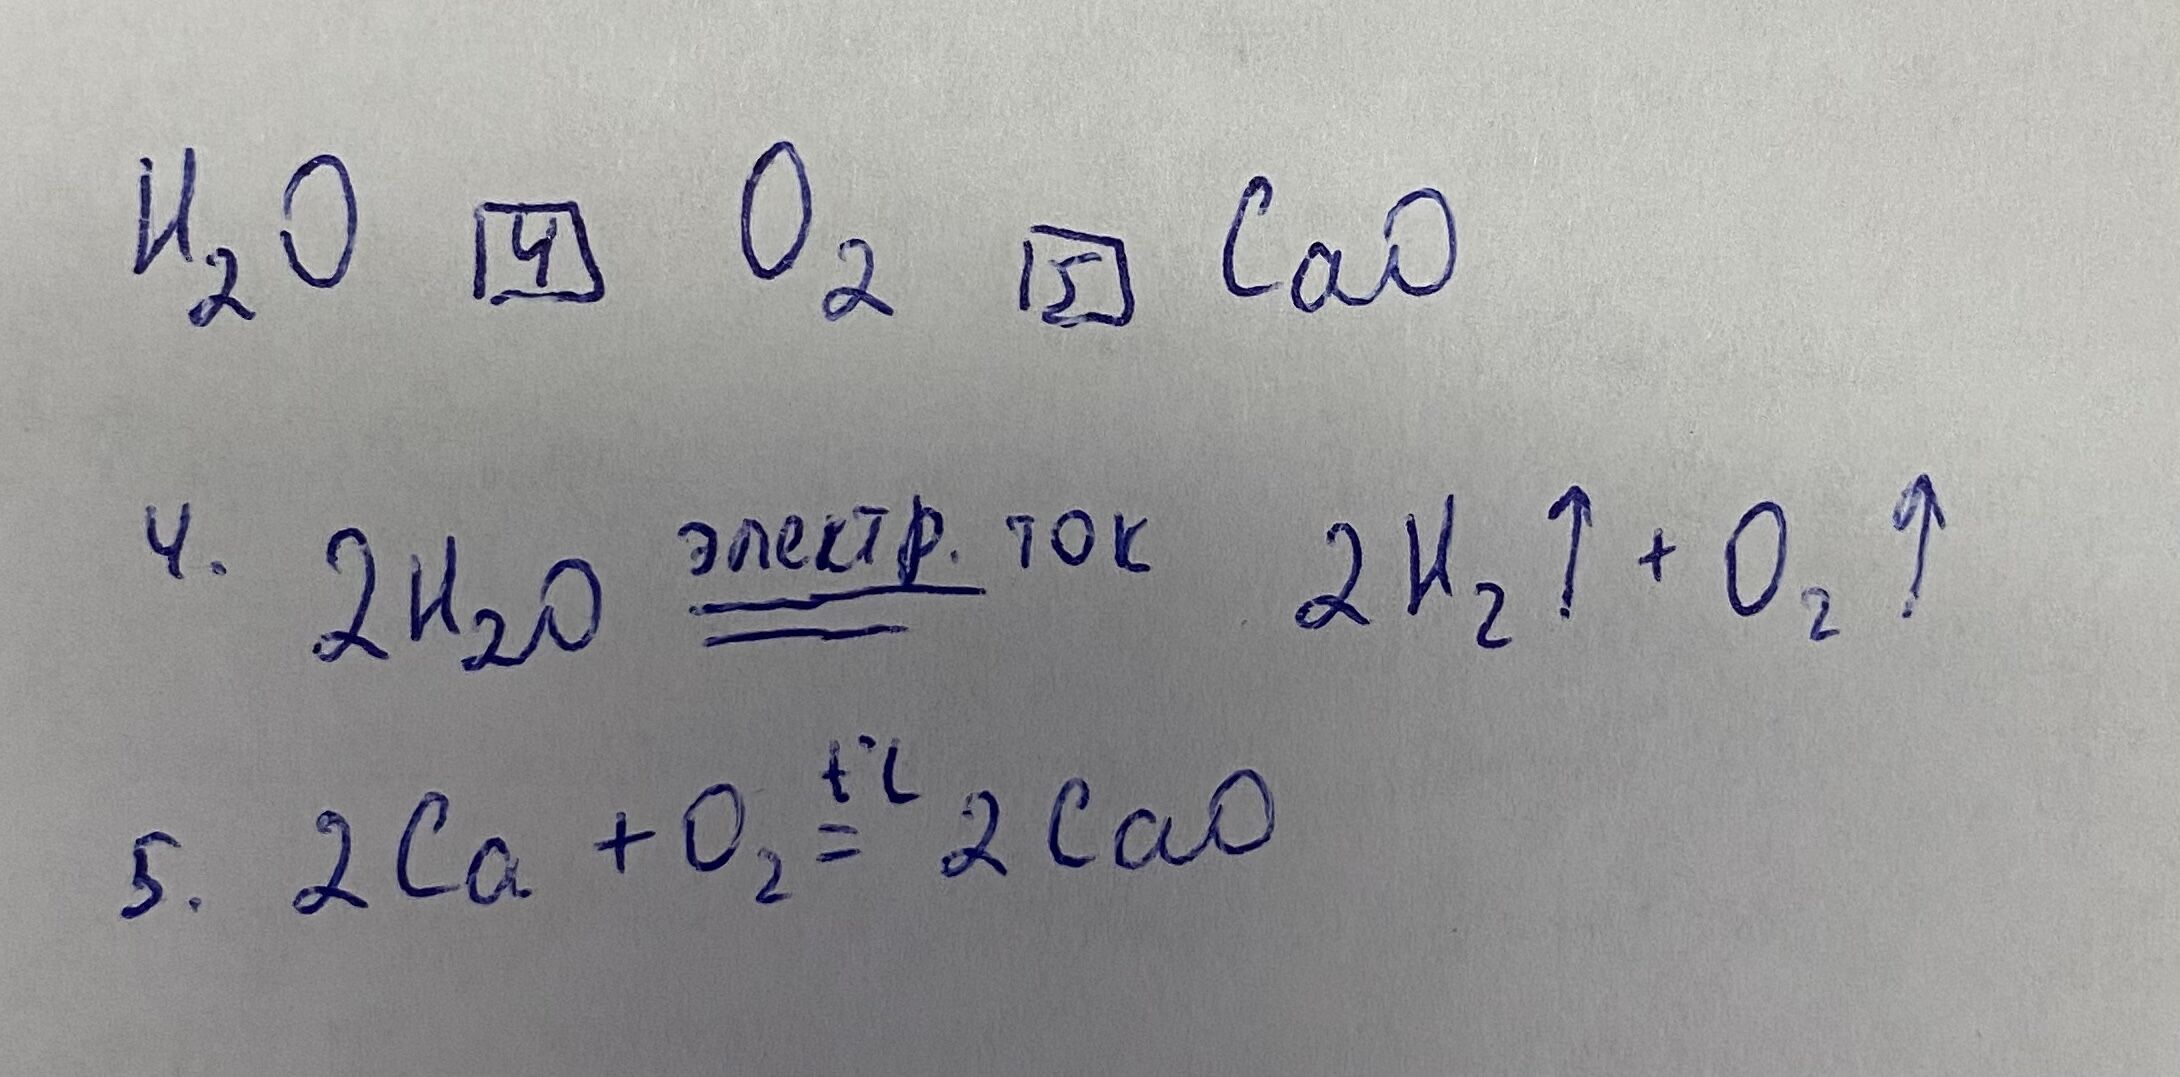 H₂O [4] O₂ [5] CaO
4. 2H₂O электр. ток 2H₂↑ + O₂↑
5. 2Ca + O₂ t°C = 2CaO